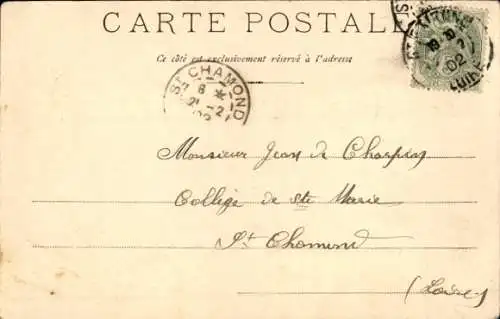 CARTE POSTALE
Ce côté est exclusivement réservé à l'adresse
ST ETIENNE
19 30
2
02
LOIRE
ST CHAMOND
8 *
21 -2
02
Monsieur Jean de Charpin
Collège de Ste Marie
St. Chamond
(Loire)